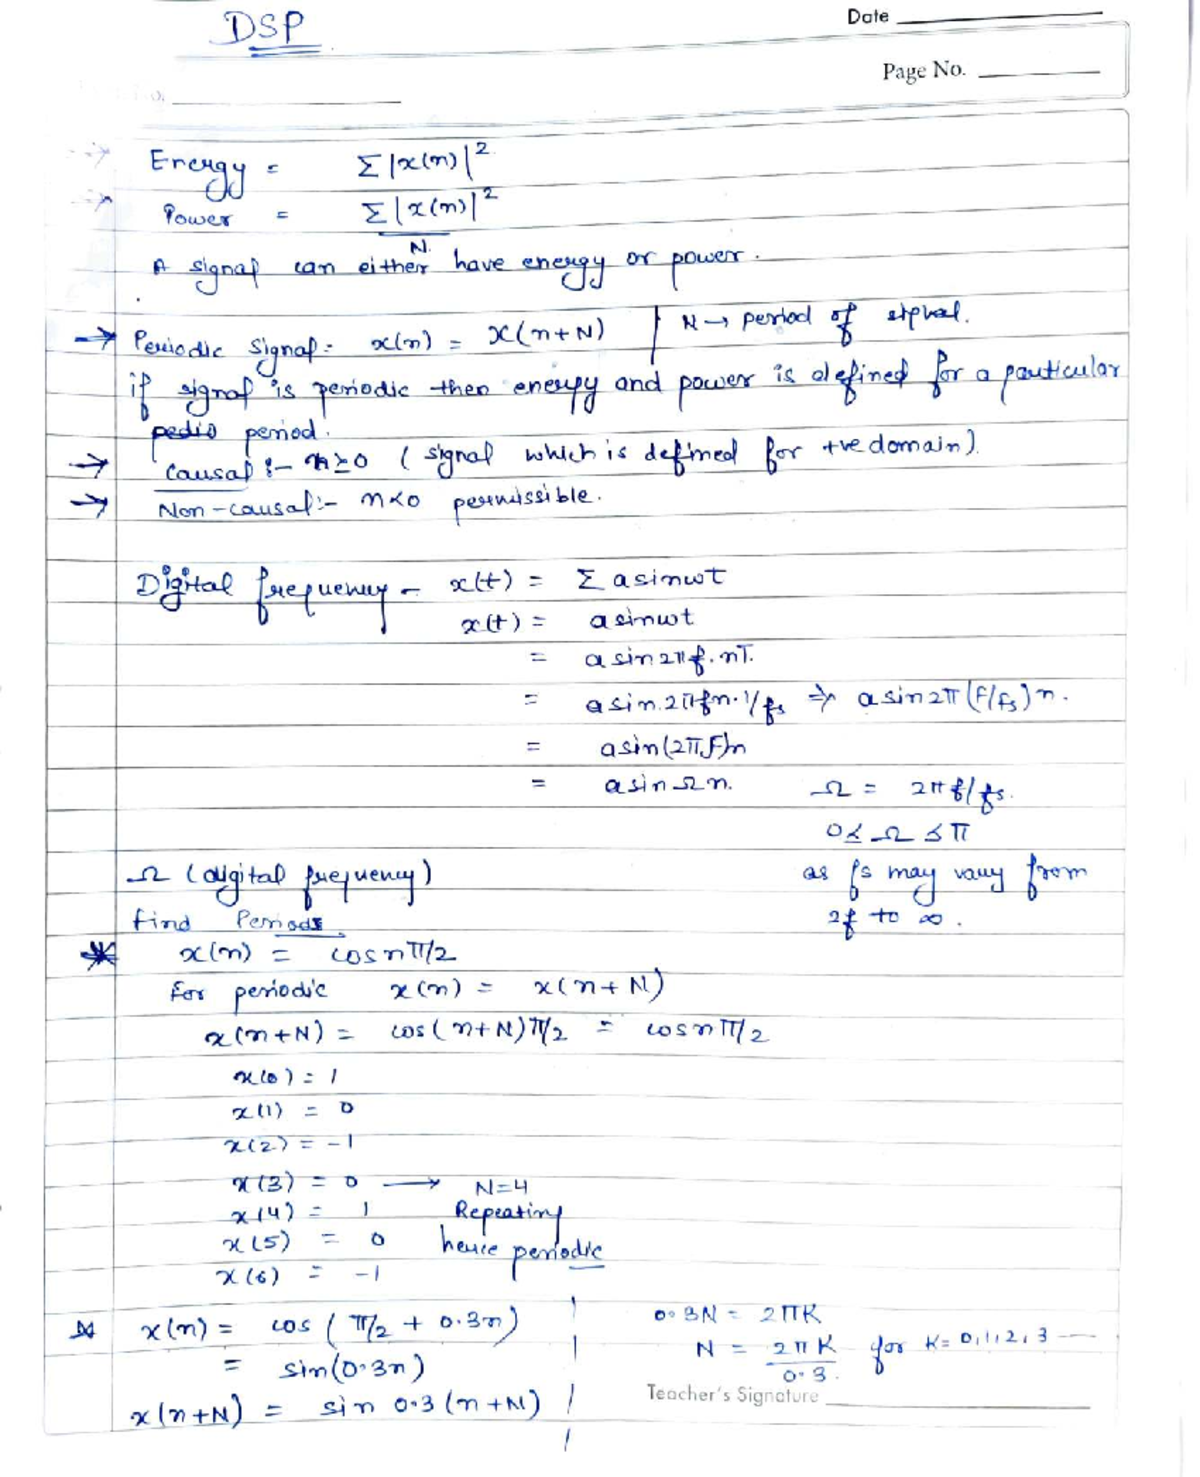 DSP
Date
Page No.
Energy = Σ|x(n)|²
Power = Σ|x(n)|²
N
A signal can either have energy or power.
Periodic Signal:- x(n) = x(n+N) | N → period of signal.
if signal is periodic then energy and power is defined for a particular
period.
Causal :- n≥0 ( signal which is defined for +ve domain).
Non-causal:- n<0 permissible.
Digital frequency - x(t) = Σ a sinωt
x(t) = a sinωt
= a sin 2πf.nT.
= a sin.2πfn.1/fs ⇒ a sin2π(F/fs)n.
= a sin(2πF)n
= a sinΩn. Ω = 2πf/fs.
0≤Ω≤π
Ω (digital frequency) as fs may vary from
2f to ∞.
find Periods.
x(n) = cosnπ/2
For periodic x(n) = x(n+N)
x(n+N) = cos(n+N)π/2 = cosnπ/2
x(0) = 1
x(1) = 0
x(2) = -1
x(3) = 0 → N=4
x(4) = 1 Repeating
x(5) = 0 hence periodic
x(6) = -1
x(n) = cos (π/2 + 0.3n)
= sin(0.3n)
x(n+N) = sin 0.3(n+N)
0.3N = 2πK
N = 2πK for K=0,1,2,3 —
0.3.
Teacher's Signature